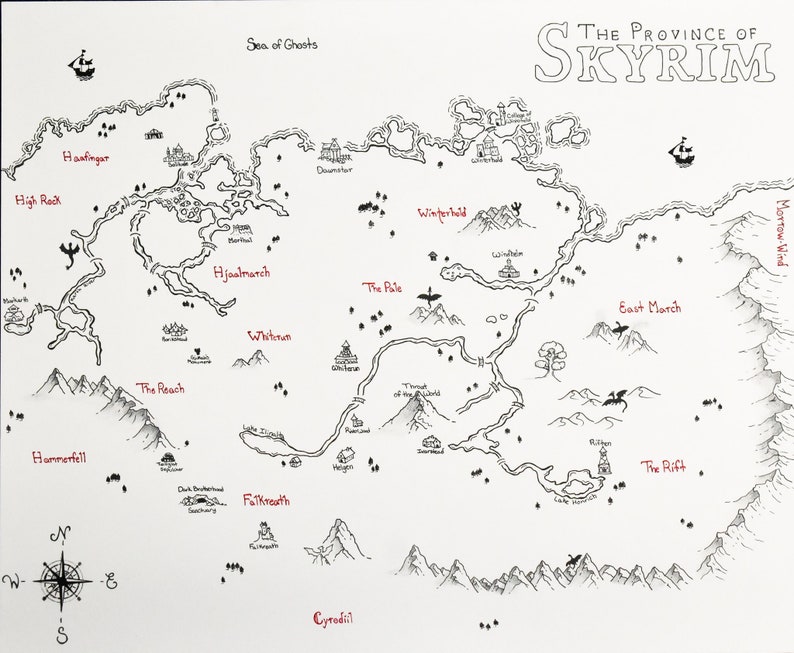 THE PROVINCE OF
SKYRIM
Sea of Ghosts
College of
Winterhold
Haafingar
Solitude
Dawnstar
Winterhold
High Rock
Morrow-Wind
Winterhold
Morthal
Windhelm
Hjaalmarch
The Pale
Markarth
East March
Whiterun
Monument
Whiterun
The Reach
Throat
of the World
Lake Ilinalta
Riverwood
Ivarstead
Riften
Hammerfell
Twilight
Sepulcher
Helgen
The Rift
Dark Brotherhood
Sanctuary
Falkreath
Lake Honrich
Falkreath
N
W
E
S
Cyrodiil